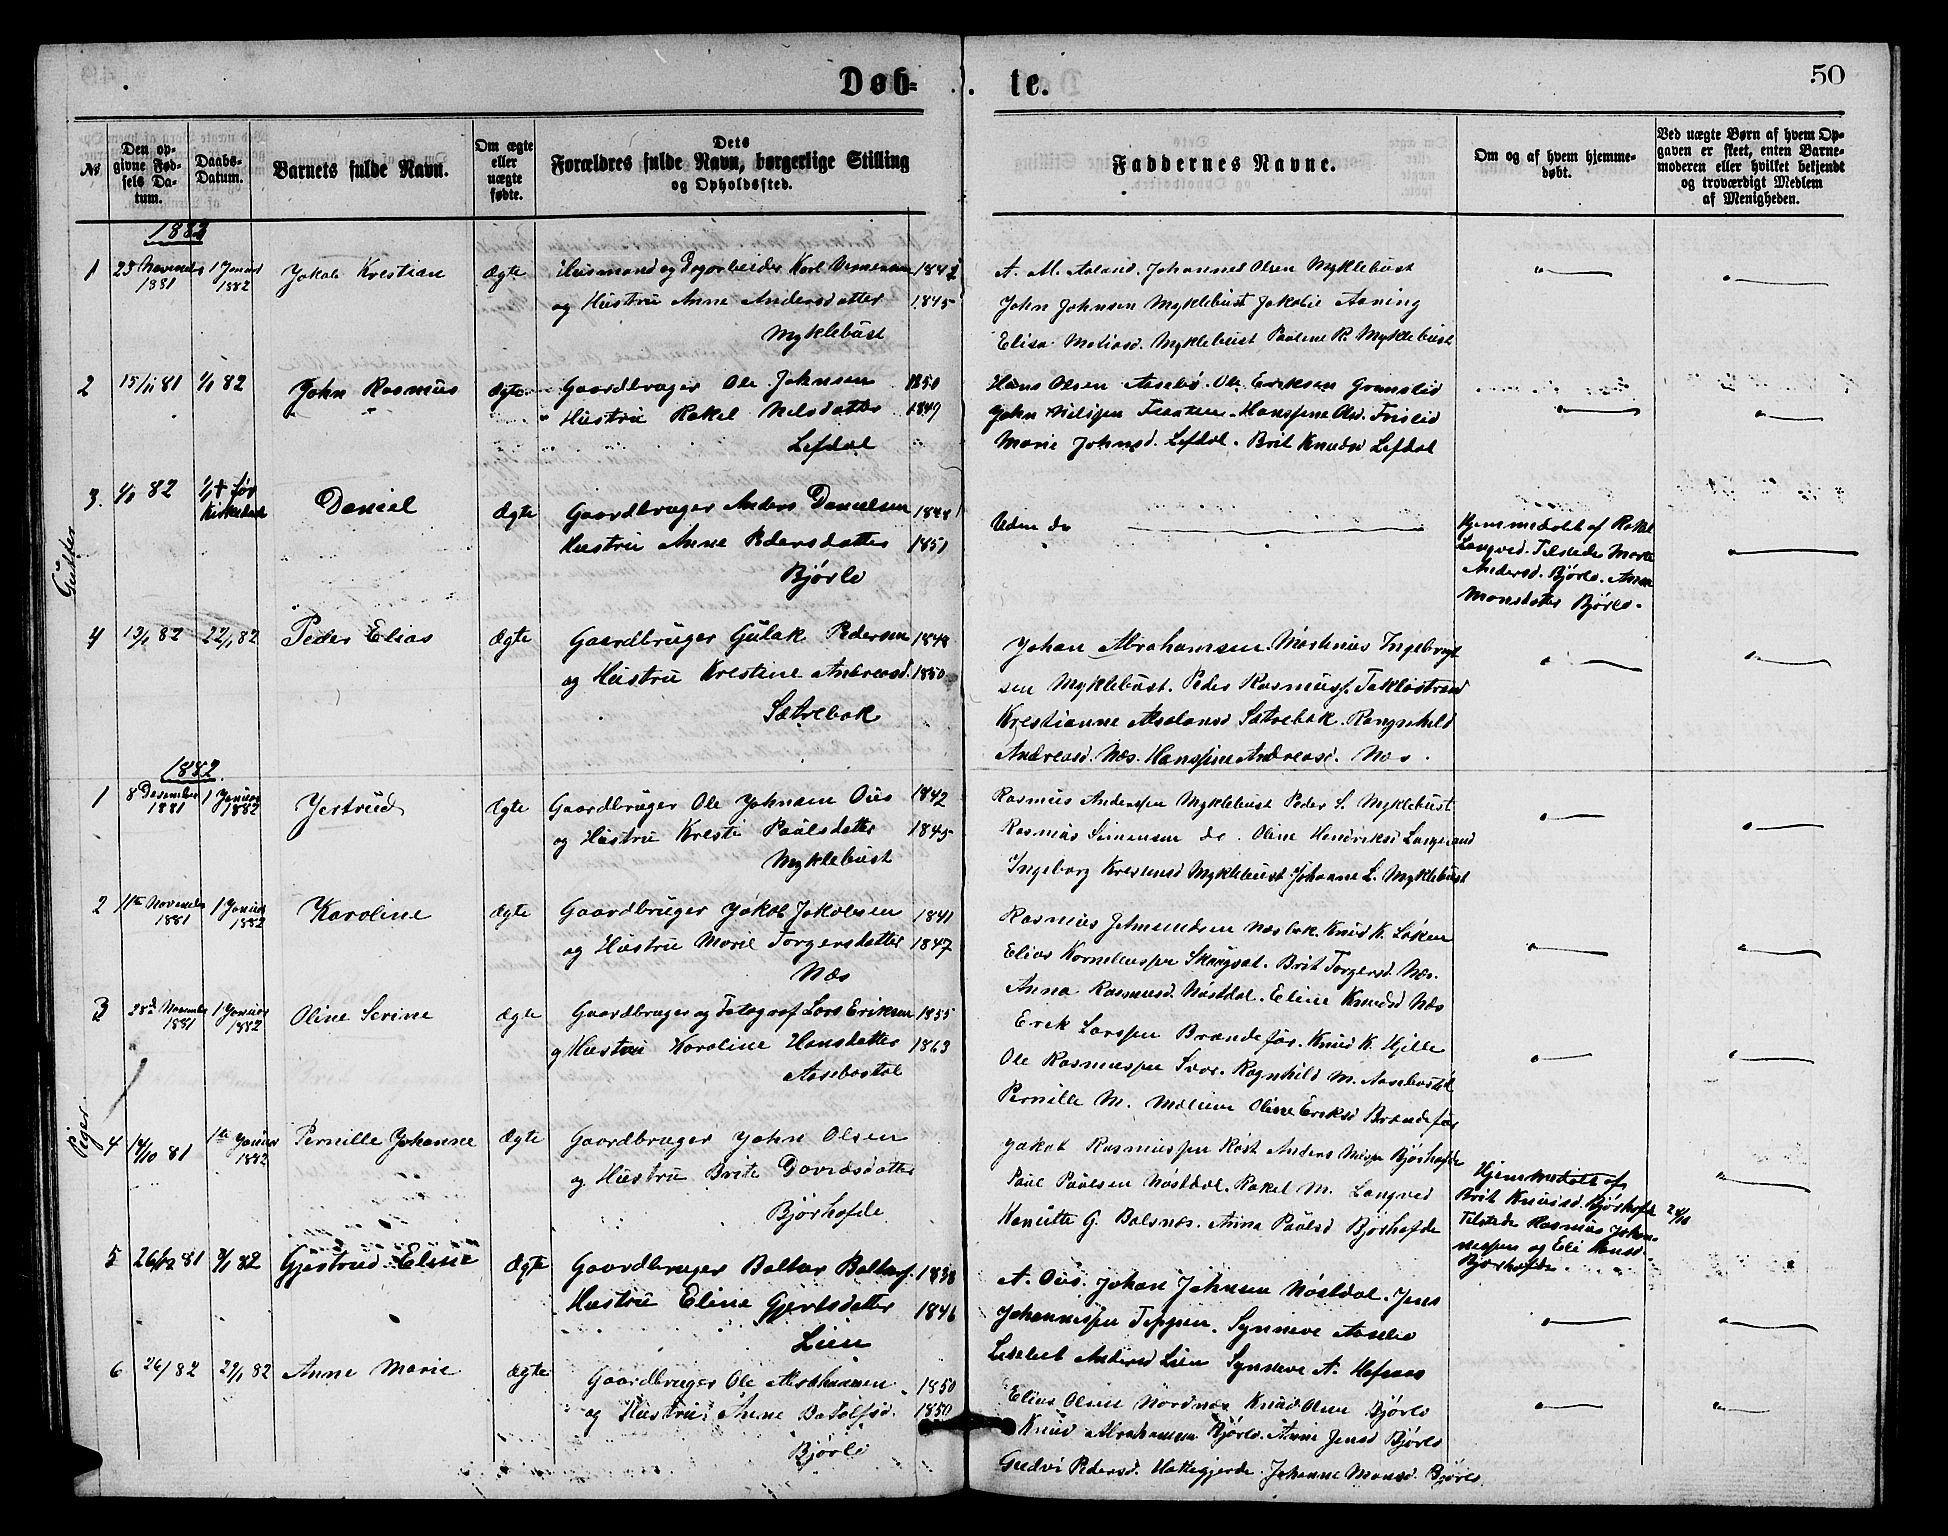 Døb-
te.
50
№
Den opgivne Fødsels Datum.
Daabs-Datum.
Barnets fulde Navn.
Om ægte eller uægte fødte.
Dets Forældres fulde Navn, borgerlige Stilling og Opholdssted.
Faddernes Navne.
Om og af hvem hjemmedøbt.
Ved uægte Børn af hvem Opgaven er skeet, enten Barnemoderen eller hvilket bekjendt og troværdigt Medlem af Menigheden.
Gutter
1882
1 November 1881 1 Januar 1882 Jakob Krestian Ægte Husmand og Karl
og Hustru Anne Andersdatter 1845
Myklebust
A. M. Aaland. Johannes Olsen Myklebust
John Johnsen Myklebust Jakobie Aaning
Elisa Matiasd. Myklebust Pauline R. Myklebust
2 15/11 81 1/1 82 John Rasmus Ægte Gaardbruger Ole Johnsen 1850
Hustru Rakel Nilsdatter 1849
Lefdal
Hans Olsen Aasebø. Ole Eriksen
Marie Johnsd. Lefdal. Brit Knudsd Lefdal
3. 1/1 82 1/1 † før Daniel Ægte Gaardbruger Anders Danielsen 1848
Hustru Anne Pedersdatter 1851
Bjørlo
Hjemmedøbt af Rakel
Langved. Tilstede Marte
Andersd. Bjørlo. Anne
Monsdatter Bjørlo.
4 13/1 82 22/1 82 Peder Elias Ægte Gaardbruger Gulak Pedersen 1848
og Hustru Krestine Andreasd. 1850
Sætrebak
Johan Abrahamsen. Martinus Ingebrigt
sen Myklebust. Peder Rasmuss. Taklostrand
Krestianne Absalonsd Sætrebak. Rangnhild
Andreasd. Næs. Hanssine Andreasd. Næs.
Piger.
1882
1 8 Desember 1881 1 Januar 1882 Jertrud Ægte Gaardbruger Ole Johnsen Ous 1842
og Hustru Kresti Paulsdatter 1845
Myklebust
Rasmus Anderssen Myklebust Peder S. Myklebust
Rasmus Simensen do. Oline Hendriksd
Ingeborg Myklebust Johanne L. Myklebust
2 11te November 1881 1 Januar 1882 Karoline Ægte Gaardbruger Jakob Jakobsen 1841
og Hustru Marie Torgersdatter 1847
Næs
Rasmus Næsbak. Knud K. Løken
Elias Korneliussen. Brit Torgersd. Næs.
Anna Rasmusd. Nøstdal. Eline Knudsd Næs
3 28de November 1881 1 Januar 1882 Oline Serine Ægte Gaardbruger og Fotograf Lars Eriksen 1855
og Hustru Karoline Hansdatter 1863
Aasebøstøl
Erik Larssen Brændefør. Knud K. Hjelle
Ole Rasmussen. Ragnhild M. Aasebøstøl
Pernille M. Oline Eriksd Brændefør
4 14/10 81 1te Januar 1882 Pernille Johanne Ægte Gaardbruger John Olsen
og Hustru Brite Davidsdatter
Bjørhofde
Jakob Rasmussen Anders Bjørhofde
Paul Paulsen Nøstdal. Rakel M. Langved
Kanutte G. Balsnæs. Anna Paulsd Bjørhofde
Hjemmedøbt af
Brit Knudsd. Bjørhofde
Tilstede Rasmus Johan-
nessen og Eli
Bjørhofde.
5 26/12 81 82 Gjertrud Eline Ægte Gaardbruger Baltser 1838
Hustru Eline Gjertsdatter 1846
Lien
A. Ous. Johan Johnsen Nøstdal. Jens
Johannessen Teppen. Synneve Aasebø
Andersd Lien Synneve A.
6 82 29/1 82 Anne Marie Ægte Gaardbruger Ole Abrahamsen 1850
og Hustru Anne 1850
Bjørlo
Elias Olsen Nordnæs Knud Olsen Bjørlo
Knud Abrahamsen Bjørlo. Anne Jensd Bjørlo
Gudvi Pedersd. Hattegjerde. Johanne Monsd. Bjørlo